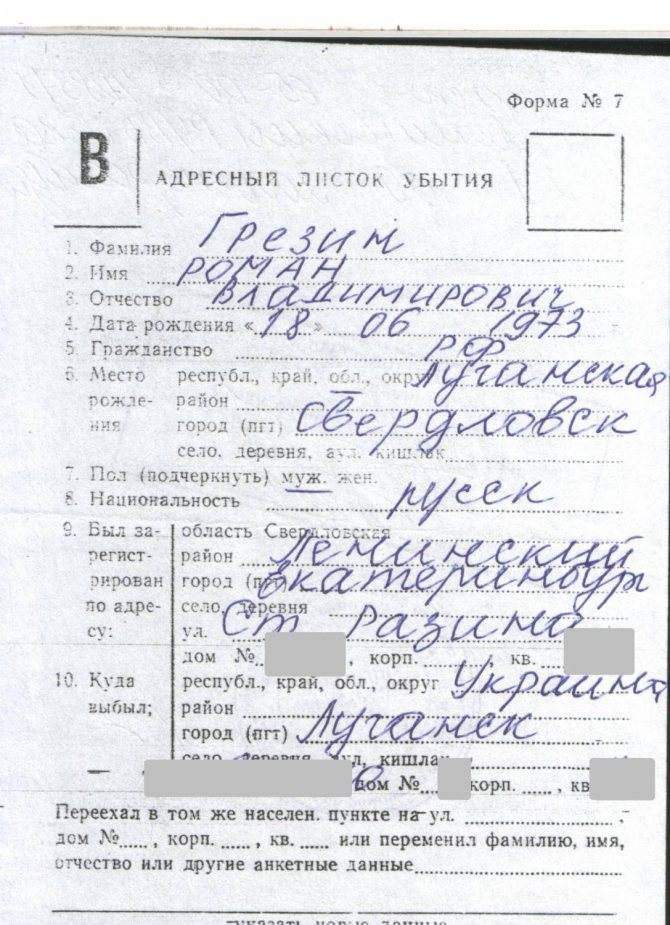 Форма № 7
В
АДРЕСНЫЙ ЛИСТОК УБЫТИЯ
1. Фамилия Грезин
2. Имя РОМАН
3. Отчество Владимирович
4. Дата рождения « 18 » 06 1973
5 Гражданство РФ
6. Место республ., край, обл., округ Луганская
рожде- район
ния город (пгт) Свердловск
село, деревня, аул, кишлак
7. Пол (подчеркнуть) муж. жен.
8. Национальность русск
9. Был за- область Свердловская
регист- район Ленинский
рирован город (пгт) Екатеринбург
по адре- село, деревня
су: ул. Ст Разина
дом № , корп. , кв.
10. Куда республ., край, обл., округ Украина
выбыл; район
город (пгт) Луганск
село деревня, аул, кишлак
дом № корп. , кв
Переехал в том же населен. пункте на ул.
дом № , корп. , кв. или переменил фамилию, имя,
отчество или другие анкетные данные
указать новые данные